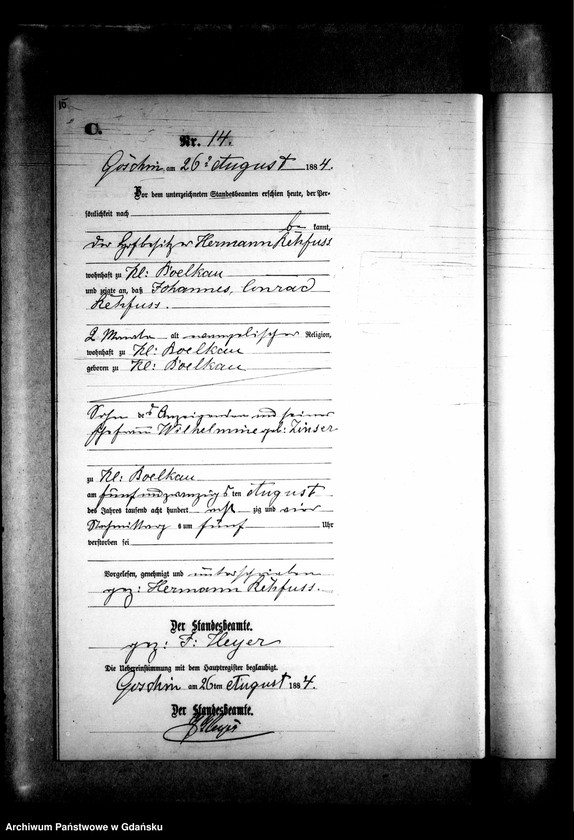 15
C.
Nr. 14.
Goschin, am 26ten August 1884.
Vor dem unterzeichneten Standesbeamten erschien heute, der Per-
sönlichkeit nach
be kannt,
der Hofbesitzer Hermann Rehfuss
wohnhaft zu Kl: Boelkau
und zeigte an, daß Johannes, Conrad
Rehfuss.
2 Monate alt evangelischer Religion,
wohnhaft zu Kl: Boelkau
geboren zu Kl: Boelkau
Sohn des Anzeigenden und seiner
Ehefrau Wilhelmine geb: Zinser
zu Kl: Boelkau
am fünf und zwanzigsten August
des Jahres tausend acht hundert acht zig und vier
Nachmittags um fünf Uhr
verstorben sei
Vorgelesen, genehmigt und unterschrieben
gez: Hermann Rehfuss.
Der Standesbeamte.
gez: F: Heyer
Die Uebereinstimmung mit dem Hauptregister beglaubigt.
Goschin am 26ten August 1884.
Der Standesbeamte.
Heyer
Archiwum Państwowe w Gdańsku